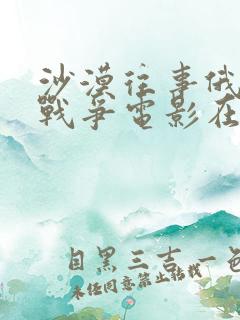 沙漠往事俄
戰爭電影在
目黑三吉一色
未经同意禁止转载